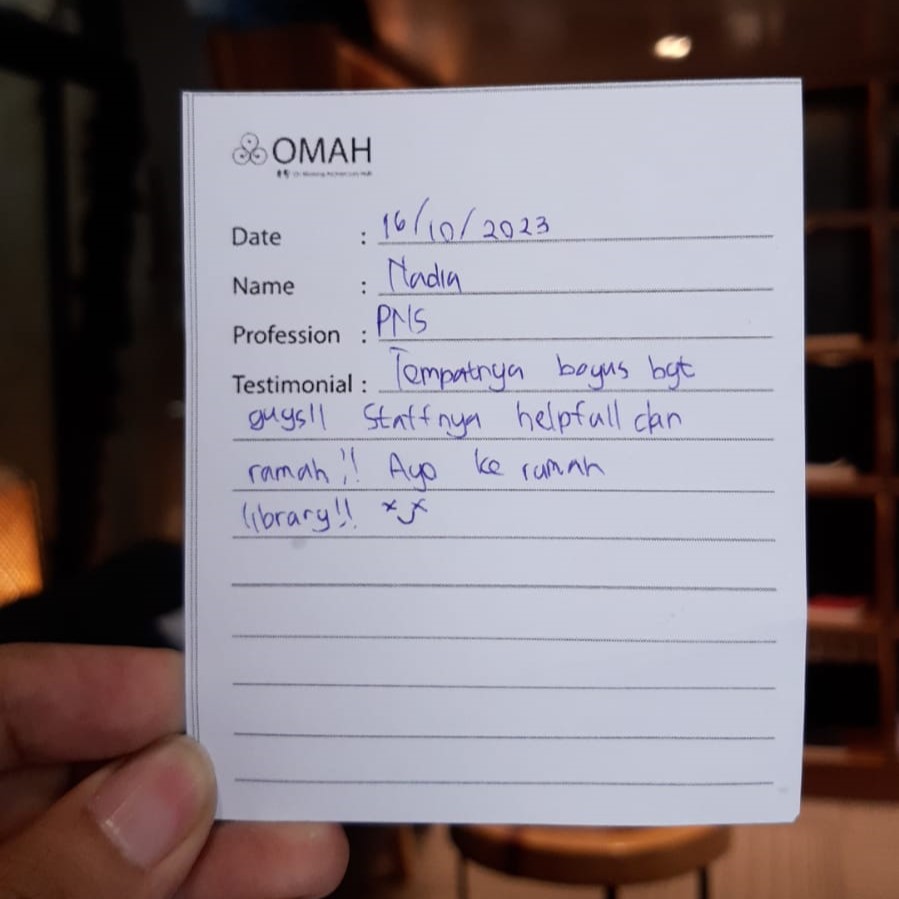 OMAH
Date : 16/10/2023
Name : Nadia
Profession : PNS
Testimonial : Tempatnya bagus bgt
guys!! Staffnya helpfull dan
ramah!! Ayo ke rumah
library!!